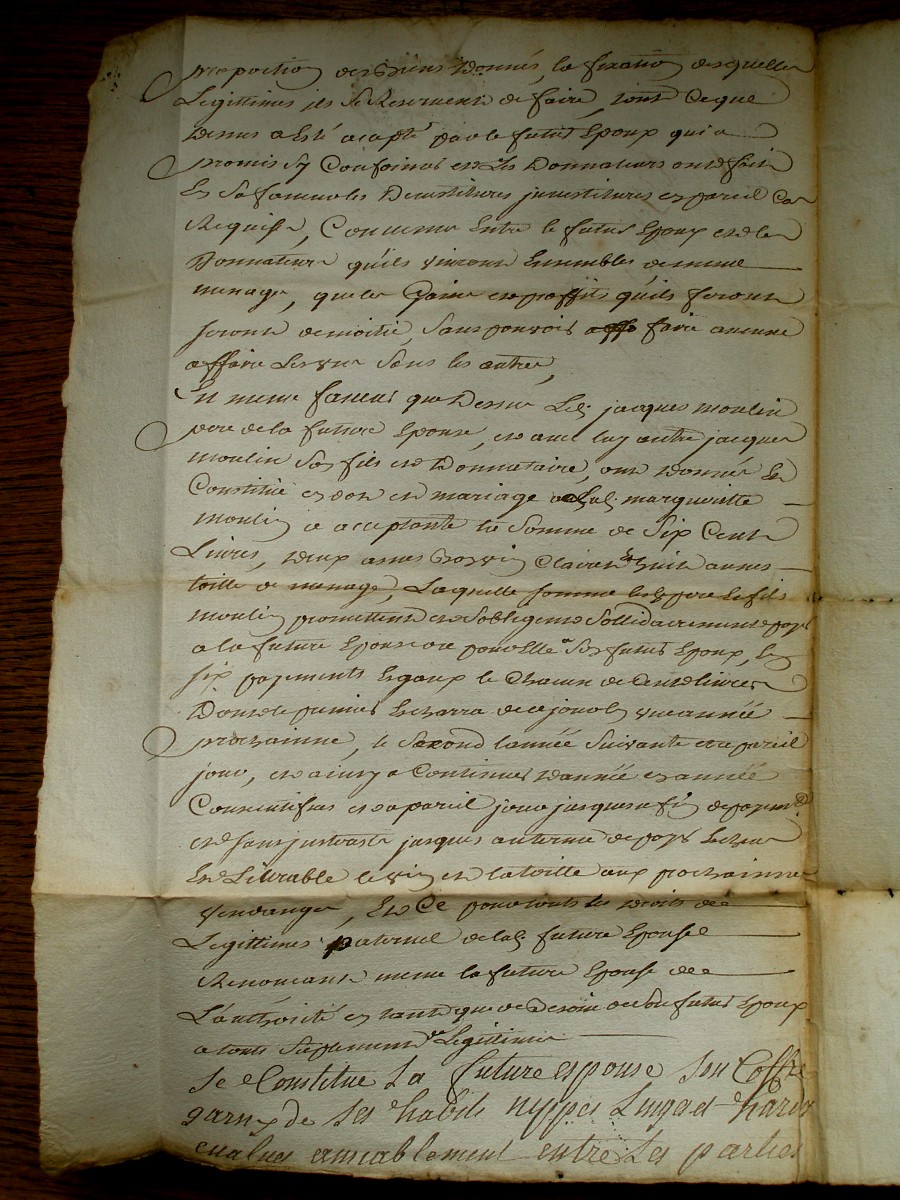 proportion des biens donnés, la fixation desquelles
Legittimes ils se Reservent de faire, tout ce que
dessus a esté acepté par le futur Epoux qui a
promis sy Conformer et les Donnateurs ont fait
En sa faveur les Devestitures jnvestitures en pareil Cas
Requise, Convenu Entre le futur Epoux et les
Donnateurs quils vivront Ensembles de meme
menage, que les Gains et proffits quils feront
seront de moitié, sans pouvoir faire aucune
affaire Les uns sans les autres,
En meme faveur que Dessus Led. jacques moulin
pere de la future Epouse, et avec luy autre jacques
moulin son fils et Donnataire, ont donné Et
Constitué en dot et mariage a Lad. margueritte
moulin ce acceptante la Somme de Six Cent
Livres, deux anées bon vin Clairet Et huit aunes
toille de menage, Laquelle somme lesd. pere Et fils
moulin promettent et sobligent Sollidairement payer
a la future Epouse ou pour Elle a son futur Epoux, En
six payements Egaux le Chacun de Cent livres
Dont le premier Echerra de ce jour En une année
prochaine, le Second lannée Suivante et a pareil
jour, et ainsy a Continuer dannée en année
Consecutifves et a pareil jour jusques a fin de payemt
et sans jnterests jusques au terme de paye Echeus
Et Livrable le vin et la toille aux prochaines
vendanges, Et Ce pour touts les droits de
Legittimes paternel de lad. future Epouse
Renonceant meme la future Epouse de
L'authorité en tant que de Besoin dud. futur Epoux
a touts Suplement de Legittime
Se Constitue La future espouse son Coffre
garny de ses habits nyppes Linge et hardes
evalués amiablement entre Les parties